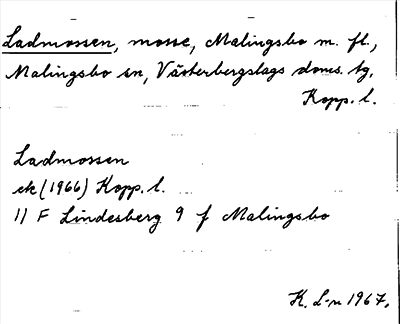 Ladmossen, mosse, Malingsbo m. fl.,
Malingsbo sn, Västerbergslags doms. tg,
Kopp. l.
Ladmossen
ek (1966) Kopp. l.
11 F Lindesberg 9 f Malingsbo
K. L-n 1967.